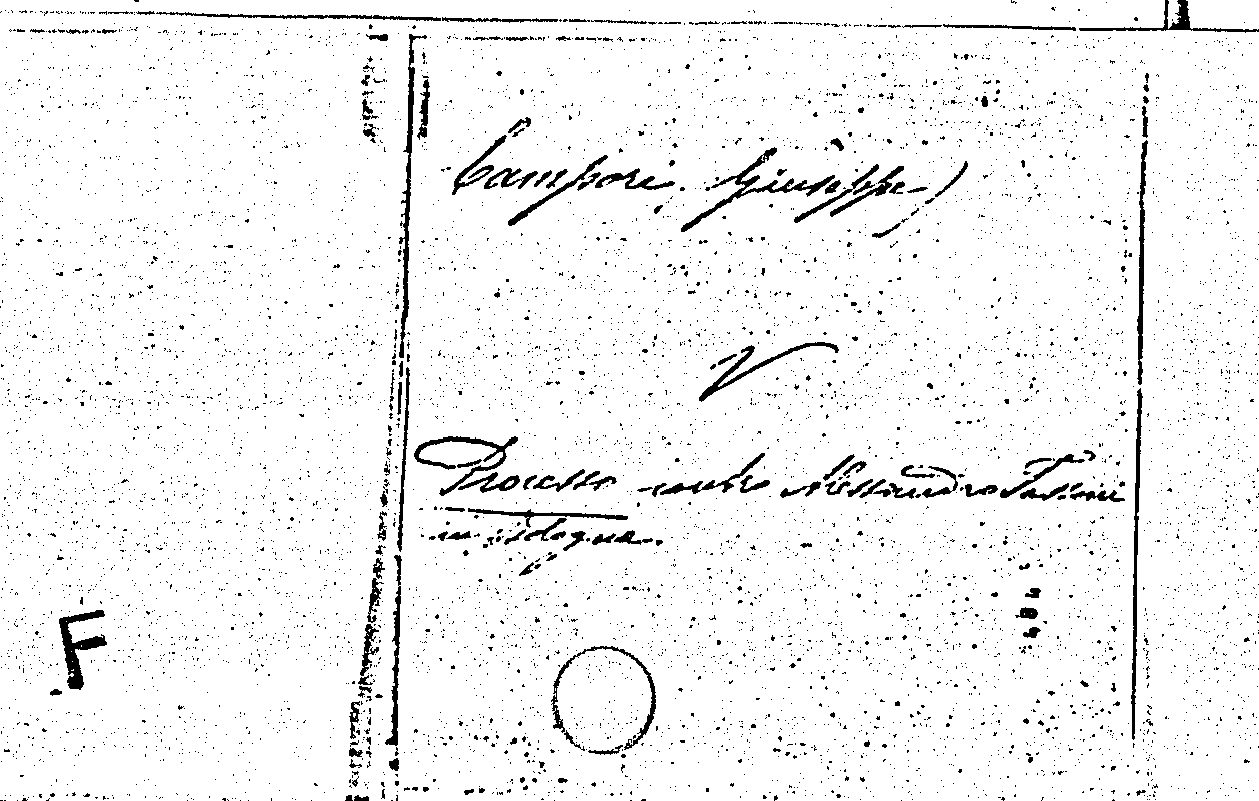 Campori, Giuseppe)
V
Processo contro Alessandro Tassoni
in
F